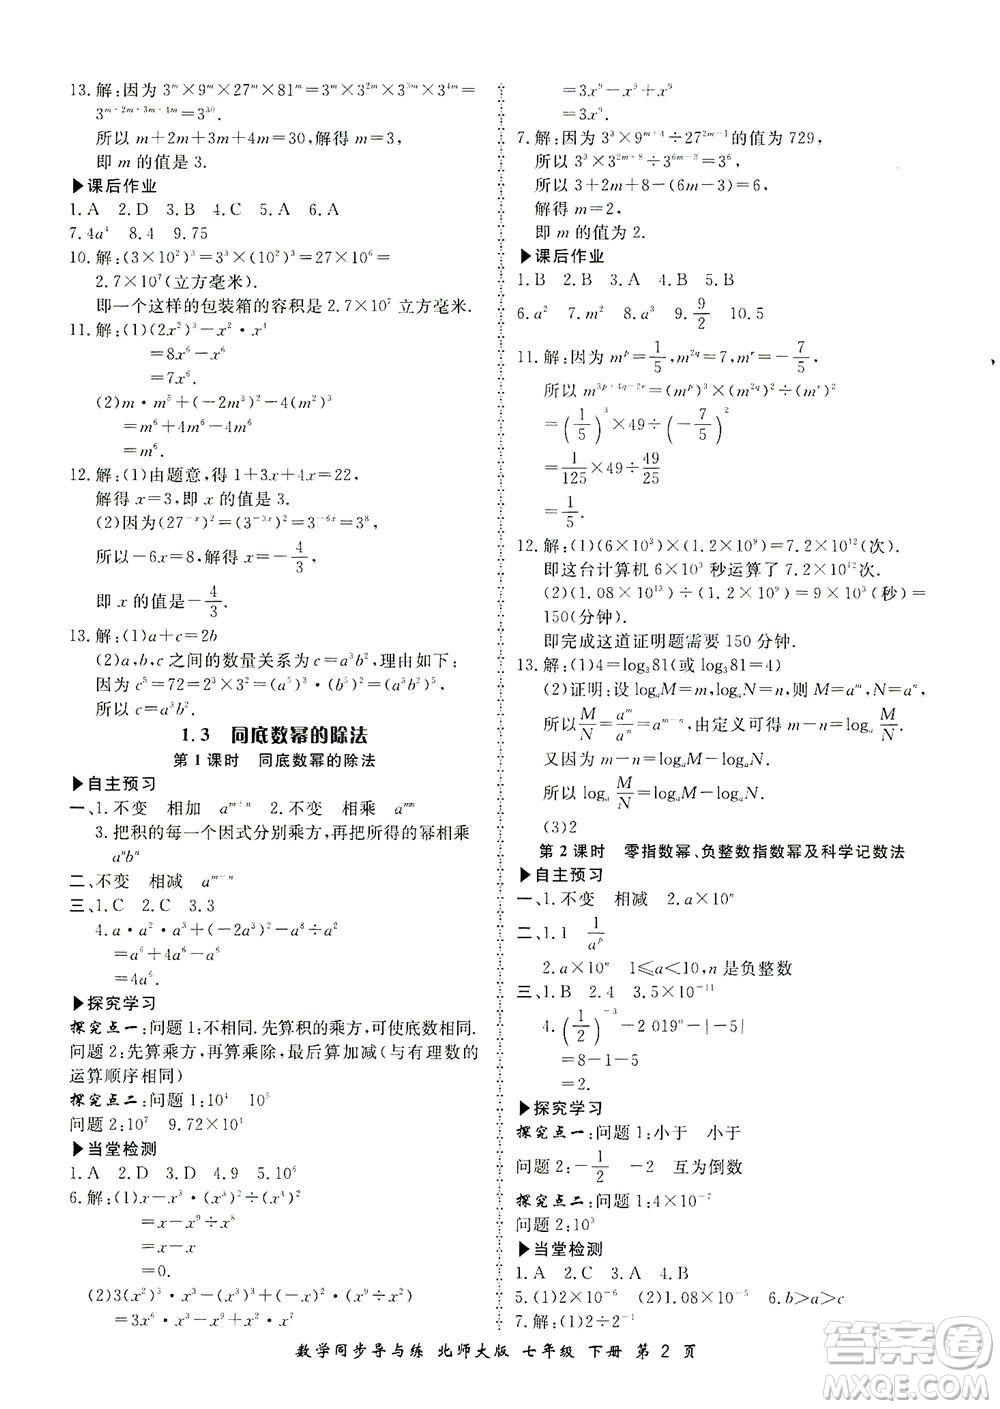 13.解:因为 3^m×9^m×27^m×81^m=3^m×3^{2m}×3^{3m}×3^{4m}=
3^{m+2m+3m+4m}=3^{30}.
所以 m+2m+3m+4m=30,解得 m=3,
即 m 的值是 3.
▶课后作业
1.A 2.D 3.B 4.C 5.A 6.A
7.4a^4 8.4 9.75
10.解:(3×10^2)^3=3^3×(10^2)^3=27×10^6=
2.7×10^7(立方毫米).
即一个这样的包装箱的容积是 2.7×10^7 立方毫米.
11.解:(1)(2x^2)^3-x^2·x^4
=8x^6-x^6
=7x^6.
(2)m·m^5+(-2m^3)^2-4(m^2)^3
=m^6+4m^6-4m^6
=m^6.
12.解:(1)由题意,得 1+3x+4x=22,
解得 x=3,即 x 的值是 3.
(2)因为(27^{-x})^2=(3^{-3x})^2=3^{-6x}=3^8,
所以-6x=8,解得 x=-4/3,
即 x 的值是-4/3.
13.解:(1)a+c=2b
(2)a,b,c 之间的数量关系为 c=a^3b^2,理由如下:
因为 c^5=72=2^3×3^2=(a^5)^3·(b^5)^2=(a^3b^2)^5,
所以 c=a^3b^2.
1.3 同底数幂的除法
第1课时 同底数幂的除法
▶自主预习
一、1.不变 相加 a^{m+n} 2.不变 相乘 a^{mn}
3.把积的每一个因式分别乘方,再把所得的幂相乘
a^nb^n
二、不变 相减 a^{m-n}
三、1.C 2.C 3.3
4.a·a^2·a^3+(-2a^3)^2-a^8÷a^2
=a^6+4a^6-a^6
=4a^6.
▶探究学习
探究点一:问题 1:不相同.先算积的乘方,可使底数相同.
问题 2:先算乘方,再算乘除,最后算加减(与有理数的
运算顺序相同)
探究点二:问题 1:10^4 10^5
问题 2:10^7 9.72×10^1
▶当堂检测
1.A 2.D 3.D 4.9 5.10^6
6.解:(1)x-x^3·(x^3)^2÷(x^4)^2
=x-x^9÷x^8
=x-x
=0.
(2)3(x^2)^3·x^3-(x^3)^3+(-x)^2·x^9÷x^2
=3x^6·x^3-x^9+x^2·x^9÷x^2
=3x^9-x^9+x^9
=3x^9.
7.解:因为 3^3×9^{m+4}÷27^{2m-1}的值为 729,
所以 3^3×3^{2m+8}÷3^{6m-3}=3^6,
所以 3+2m+8-(6m-3)=6,
解得 m=2,
即 m 的值为 2.
▶课后作业
1.B 2.B 3.A 4.A 5.B
6.a^2 7.m^2 8.a^3 9.9/2 10.5
11.解:因为 m^p=1/5,m^{2q}=7,m^r=-7/5,
所以 m^{3p+4q-2r}=(m^p)^3×(m^{2q})^2÷(m^r)^2
=(1/5)^3×49÷(-7/5)^2
=1/125×49÷49/25
=1/5.
12.解:(1)(6×10^3)×(1.2×10^9)=7.2×10^{12}(次).
即这台计算机 6×10^3 秒运算了 7.2×10^{12}次.
(2)(1.08×10^{13})÷(1.2×10^9)=9×10^3(秒)=
150(分钟).
即完成这道证明题需要 150 分钟.
13.解:(1)4=log_3 81(或 log_3 81=4)
(2)证明:设 log_a M=m,log_a N=n,则 M=a^m,N=a^n,
所以 M/N=a^m/a^n=a^{m-n},由定义可得 m-n=log_a M/N.
又因为 m-n=log_a M-log_a N,
所以 log_a M/N=log_a M-log_a N.
(3)2
第2课时 零指数幂、负整数指数幂及科学记数法
▶自主预习
一、1.不变 相减 2.a×10^n
二、1.1 1/a^p
2.a×10^n 1≤a<10,n 是负整数
三、1.B 2.4 3.5×10^{-11}
4.(1/2)^{-3}-2 019^0-|-5|
=8-1-5
=2.
▶探究学习
探究点一:问题 1:小于 小于
问题 2:-1/2 -2 互为倒数
探究点二:问题 1:4×10^{-7}
问题 2:10^3
▶当堂检测
1.A 2.B 3.A 4.B
5.(1)2×10^{-6} (2)1.08×10^{-5} 6.b>a>c
7.解:(1)2÷2^{-1}
数学同步导与练 北师大版 七年级 下册 第 2 页
答案圈
MXQE.COM